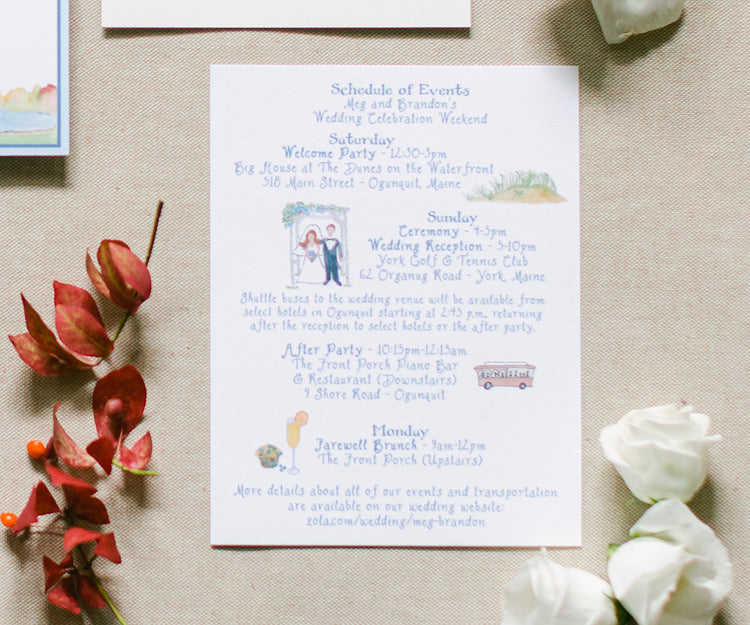 Schedule of Events
Meg and Brandon's
Wedding Celebration Weekend
Saturday
Welcome Party - 12:30-3pm
Big House at The Dunes on the Waterfront
518 Main Street - Ogunquit, Maine
Sunday
Ceremony - 4-5pm
Wedding Reception - 5-10pm
York Golf & Tennis Club
62 Organug Road - York, Maine
Shuttle buses to the wedding venue will be available from
select hotels in Ogunquit starting at 2:45 p.m., returning
after the reception to select hotels or the after party.
After Party - 10:15pm-12:15am
The Front Porch Piano Bar
& Restaurant (Downstairs)
9 Shore Road - Ogunquit
Monday
Farewell Brunch - 9am-12pm
The Front Porch (Upstairs)
More details about all of our events and transportation
are available on our wedding website:
zola.com/wedding/meg-brandon